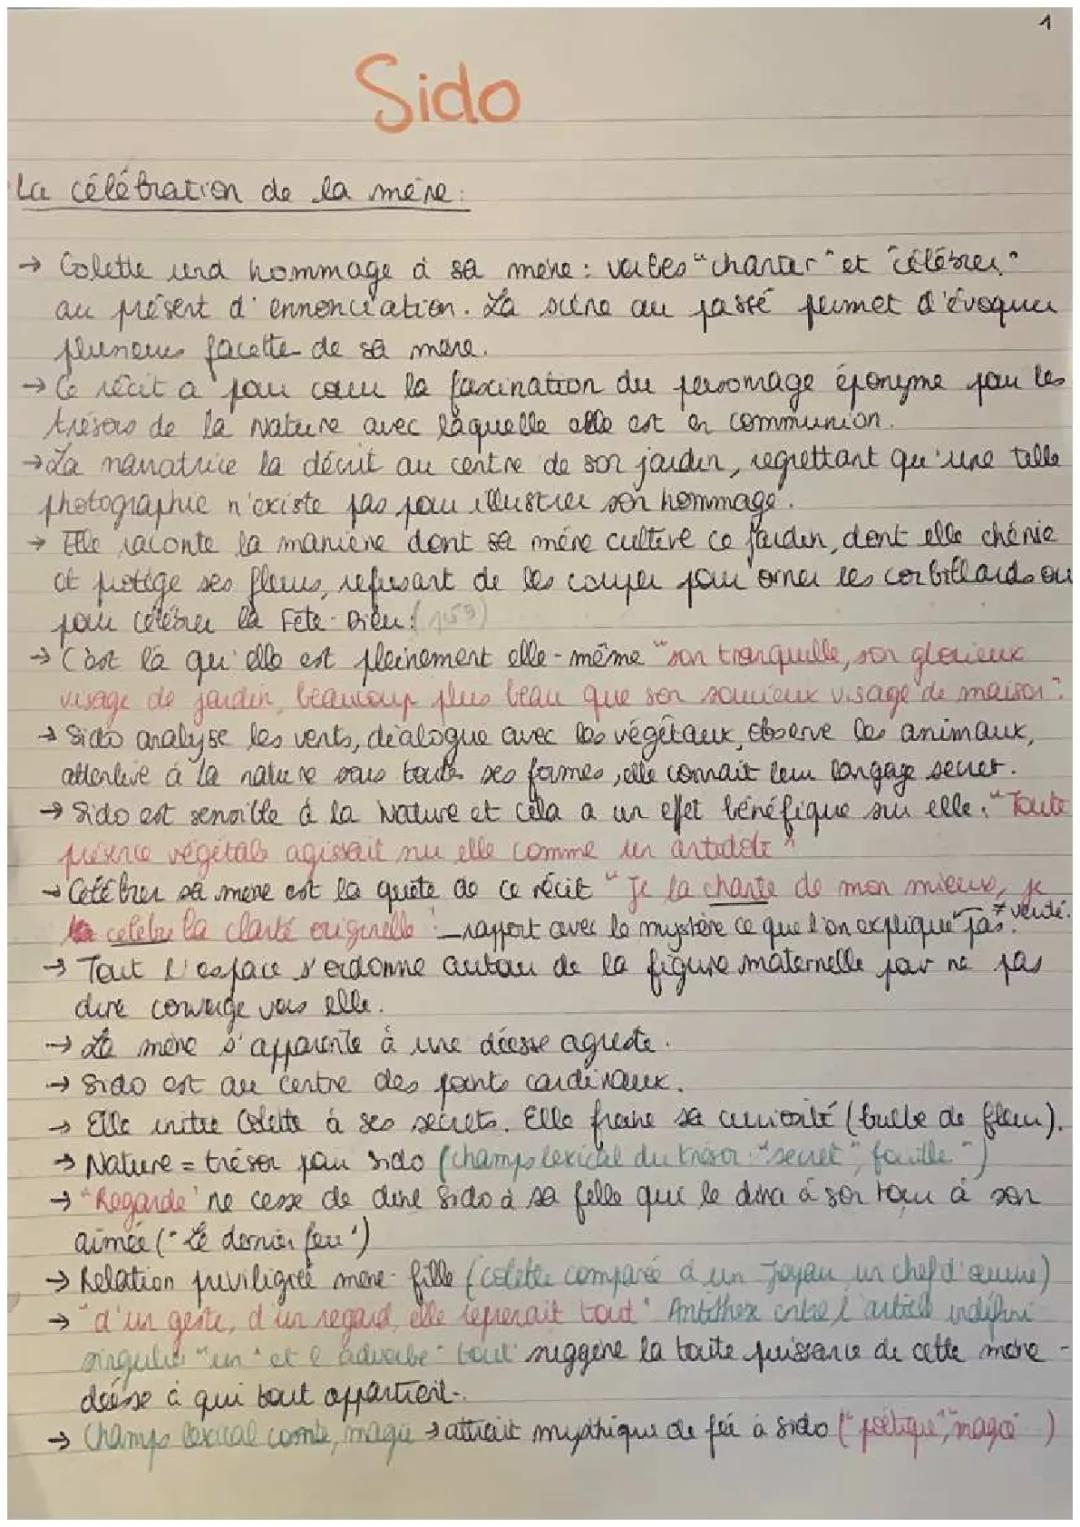 1
Sido
La célébration de la mère :
→ Colette rend hommage à sa mère : verbes "chanter" et "célébrer"
au présent d'ennonciation. La scène au passé permet d'évoquer
plusieurs facette de sa mère.
→ Ce récit a pour cœur la fascination du personnage éponyme pour les
trésors de la Nature avec laquelle elle est en communion.
→ La narratrice la décrit au centre de son jardin, regrettant qu'une telle
photographie n'existe pas pour illustrer son hommage.
→ Elle raconte la manière dont sa mère cultive ce jardin, dont elle chérie
et protège ses fleurs, refusant de les couper pour orner les corbillards ou
pour célébrer la Fête-Dieu. (p59)
→ C'est là qu'elle est pleinement elle-même "son tranquille, son glorieux
visage de jardin, beaucoup plus beau que son soucieux visage de maison".
→ Sido analyse les vents, dialogue avec les végétaux, observe les animaux,
attentive à la nature sous toutes ses formes, elle connait leur langage secret.
→ Sido est sensible à la Nature et cela a un effet bénéfique sur elle : "Toute
présence végétale agissait sur elle comme un antidote"
→ Célébrer sa mère est la quête de ce récit "Je la chante de mon mieux, je
célèbre la clarté originelle" rapport avec le mystère ce que l'on explique pas ≠ vérité.
→ Tout l'espace s'ordonne autour de la figure maternelle pour ne pas
dire converge vers elle.
→ La mère s'apparente à une déesse agreste.
→ Sido est au centre des points cardinaux.
→ Elle initie Colette à ses secrets. Elle freine sa curiosité (bulbe de fleur).
→ Nature = trésor pour Sido (champs lexical du trésor : "secret", fouille ")
→ "Regarde" ne cesse de dire Sido à sa fille qui le dira à son tour à son
aimée ("Le dernier feu")
→ Relation priviligiée mère-fille (Colette comparée à un Joyau un chef d'œuvre)
→ "d'un geste, d'un regard, elle reprenait tout" Antithèse entre l'article indéfini
singulier "un" et l'adverbe "tout" suggère la toute puissance de cette mère -
déesse à qui tout appartient.
→ Champs lexical conte, magie → attrait mythique de fée à Sido ("poétique", "magie")